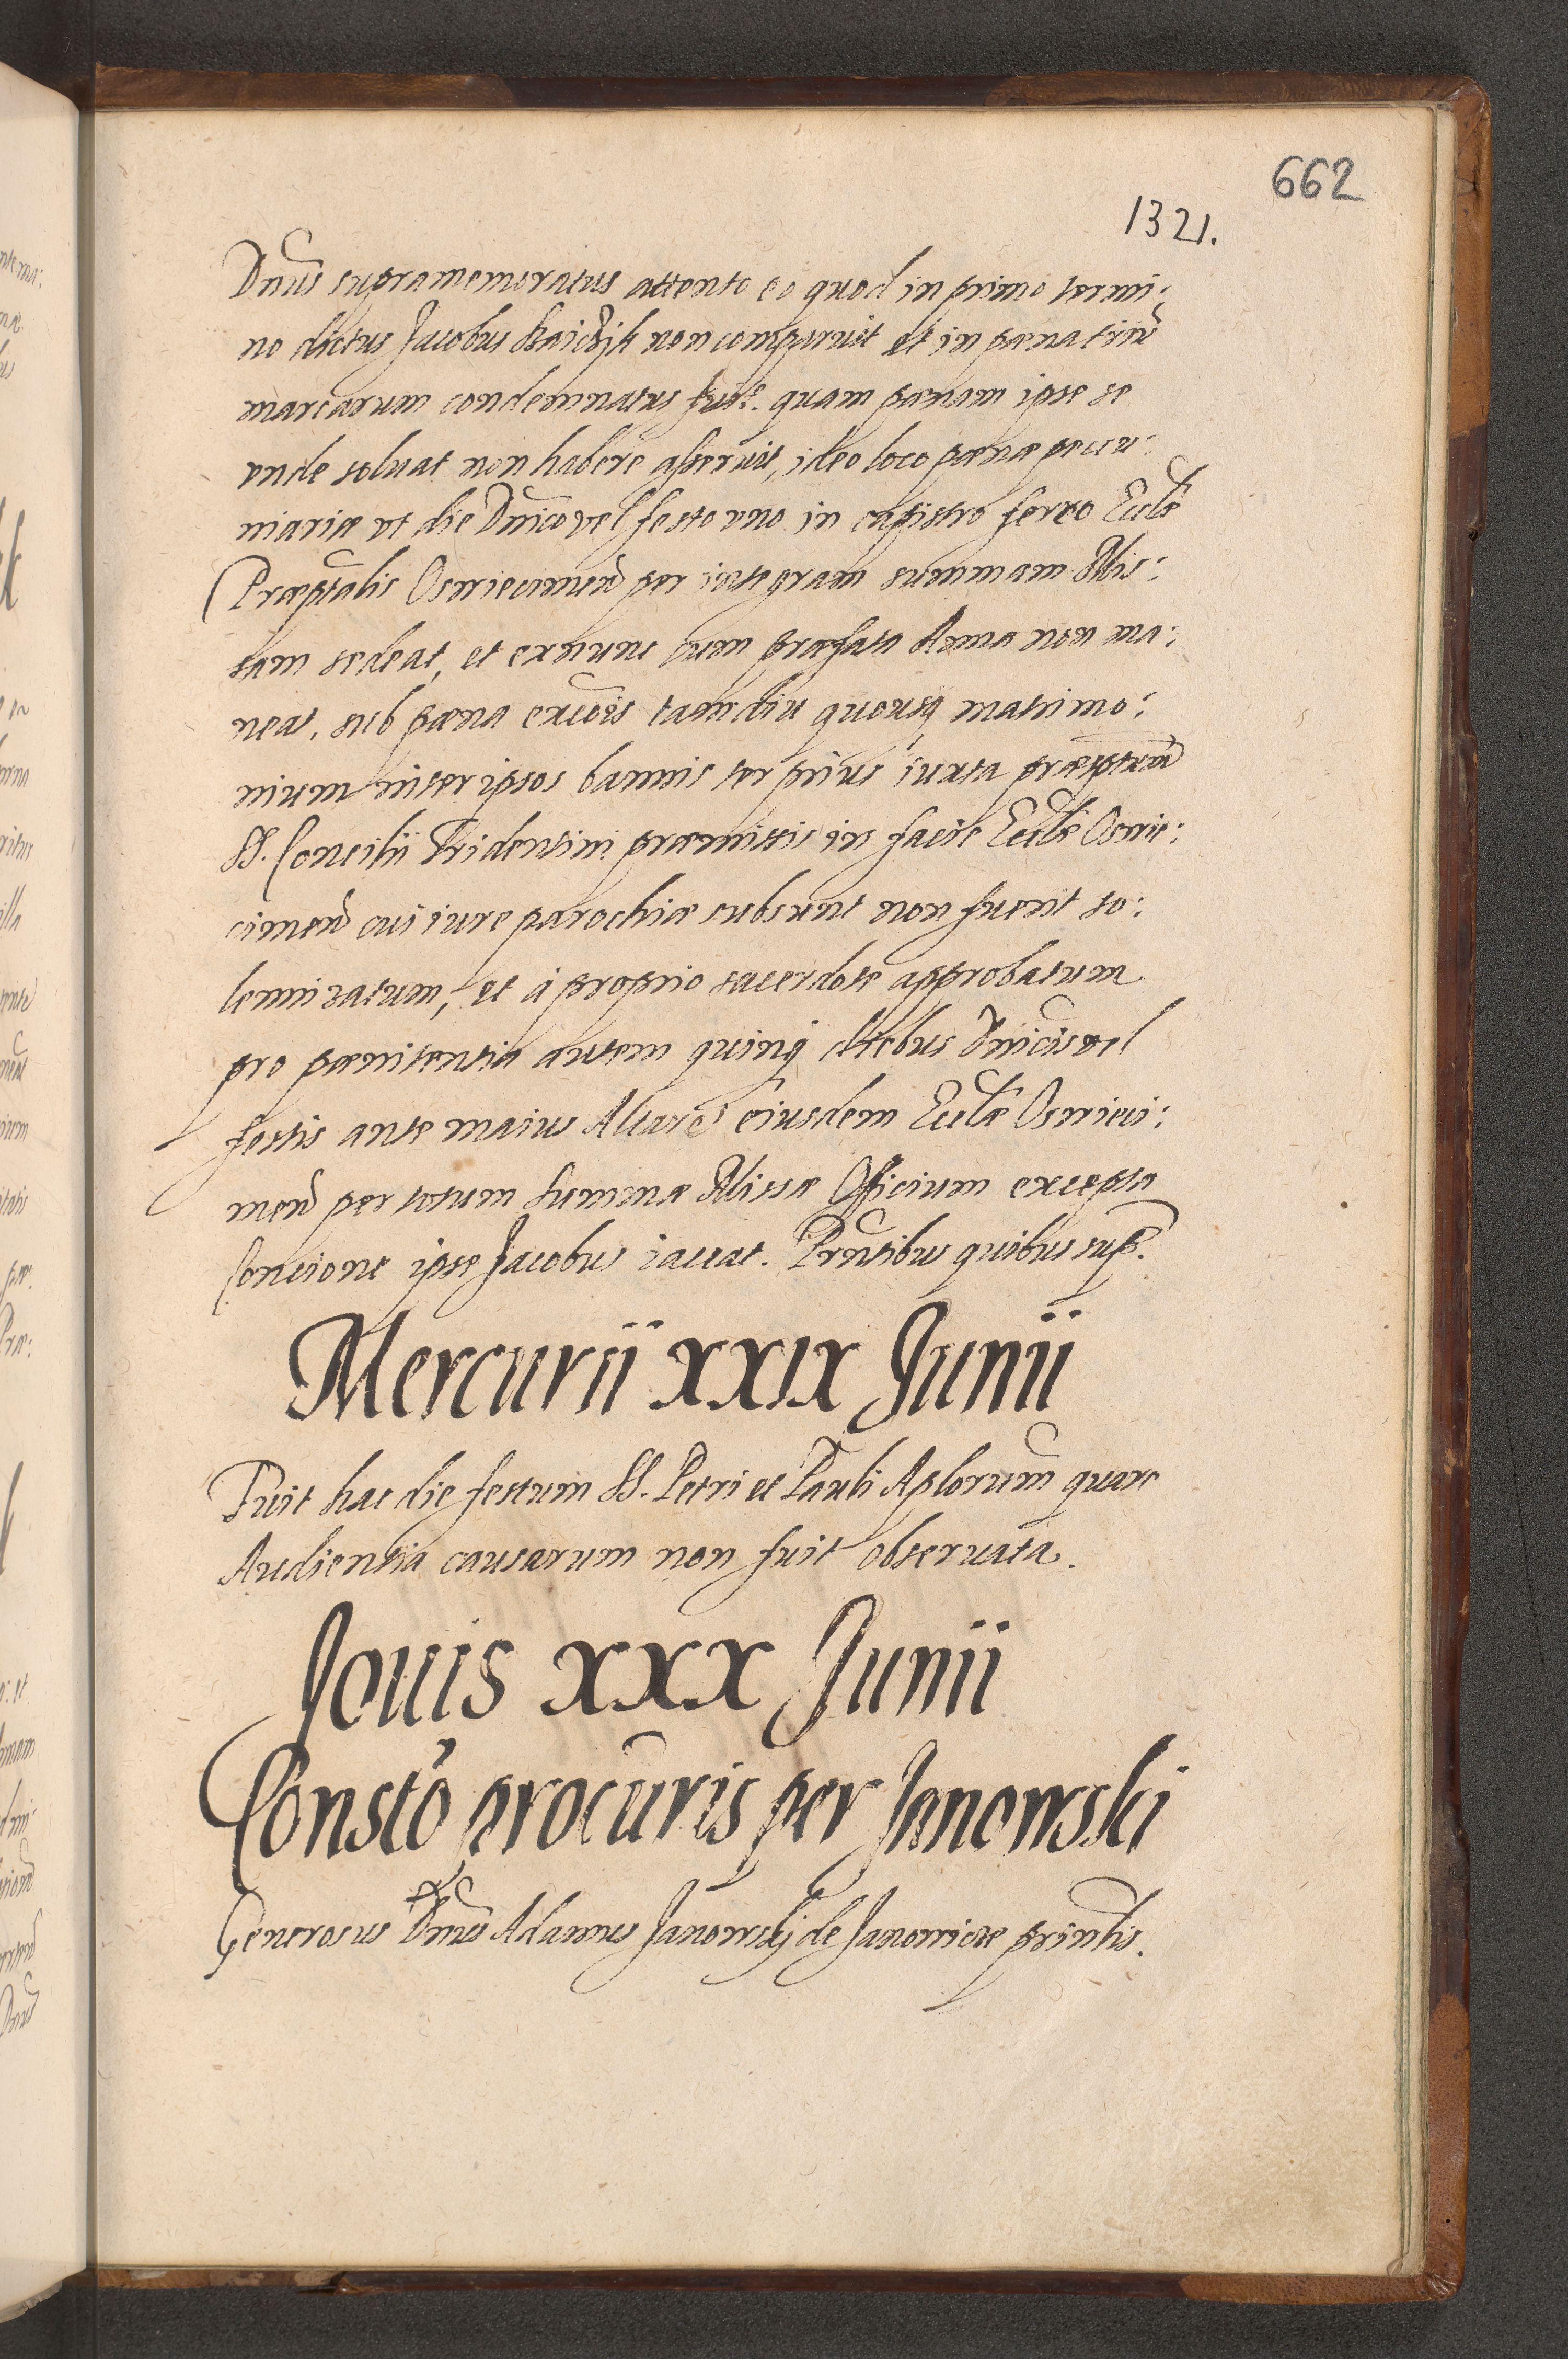 662
1321.
Dnus supramemoratus attento eo quod in primo termi:
no dictus Jacobus non comparuit et in pœna trium
marcarum condemnatus fuit. quam pœnam ipse se
vnde soluat non habere asseruit, ideo loco pœnæ pecu:
niariæ vt die Dnico vel festo vno in capistro ferreo Eccle
Præptalis Osviecimen per integram summam Mis:
sam sedeat, et exnunc cum præfata Anna non ma:
neat, sub pœna excois tamdiu quousq matrimo:
nium inter ipsos bannis ter prius iuxta præsptum
SS. Concilii Tridentini præmissis in facie Ecclæ Osvie:
cimen cui iure parochiæ subsunt non fuerit so:
lennizatum, et à proprio sacerdote approbatum
pro pœnitentia autem quinq diebus Dnicis vel
festis ante maius Altare eiusdem Ecclæ Osvieci:
men per totum summæ Missæ Officium excepta
Concione ipse Jacobus iaceat. Prntibus quibus sup.
Mercurii XXIX Junii
Fuit hac die festum SS. Petri et Pauli Aplorum quare
Audientia causarum non fuit obseruata.
Jouis XXX Junii
Consto procuris per Janowski
Generosus Dnus Adamus Janowskj de Janowice printis.